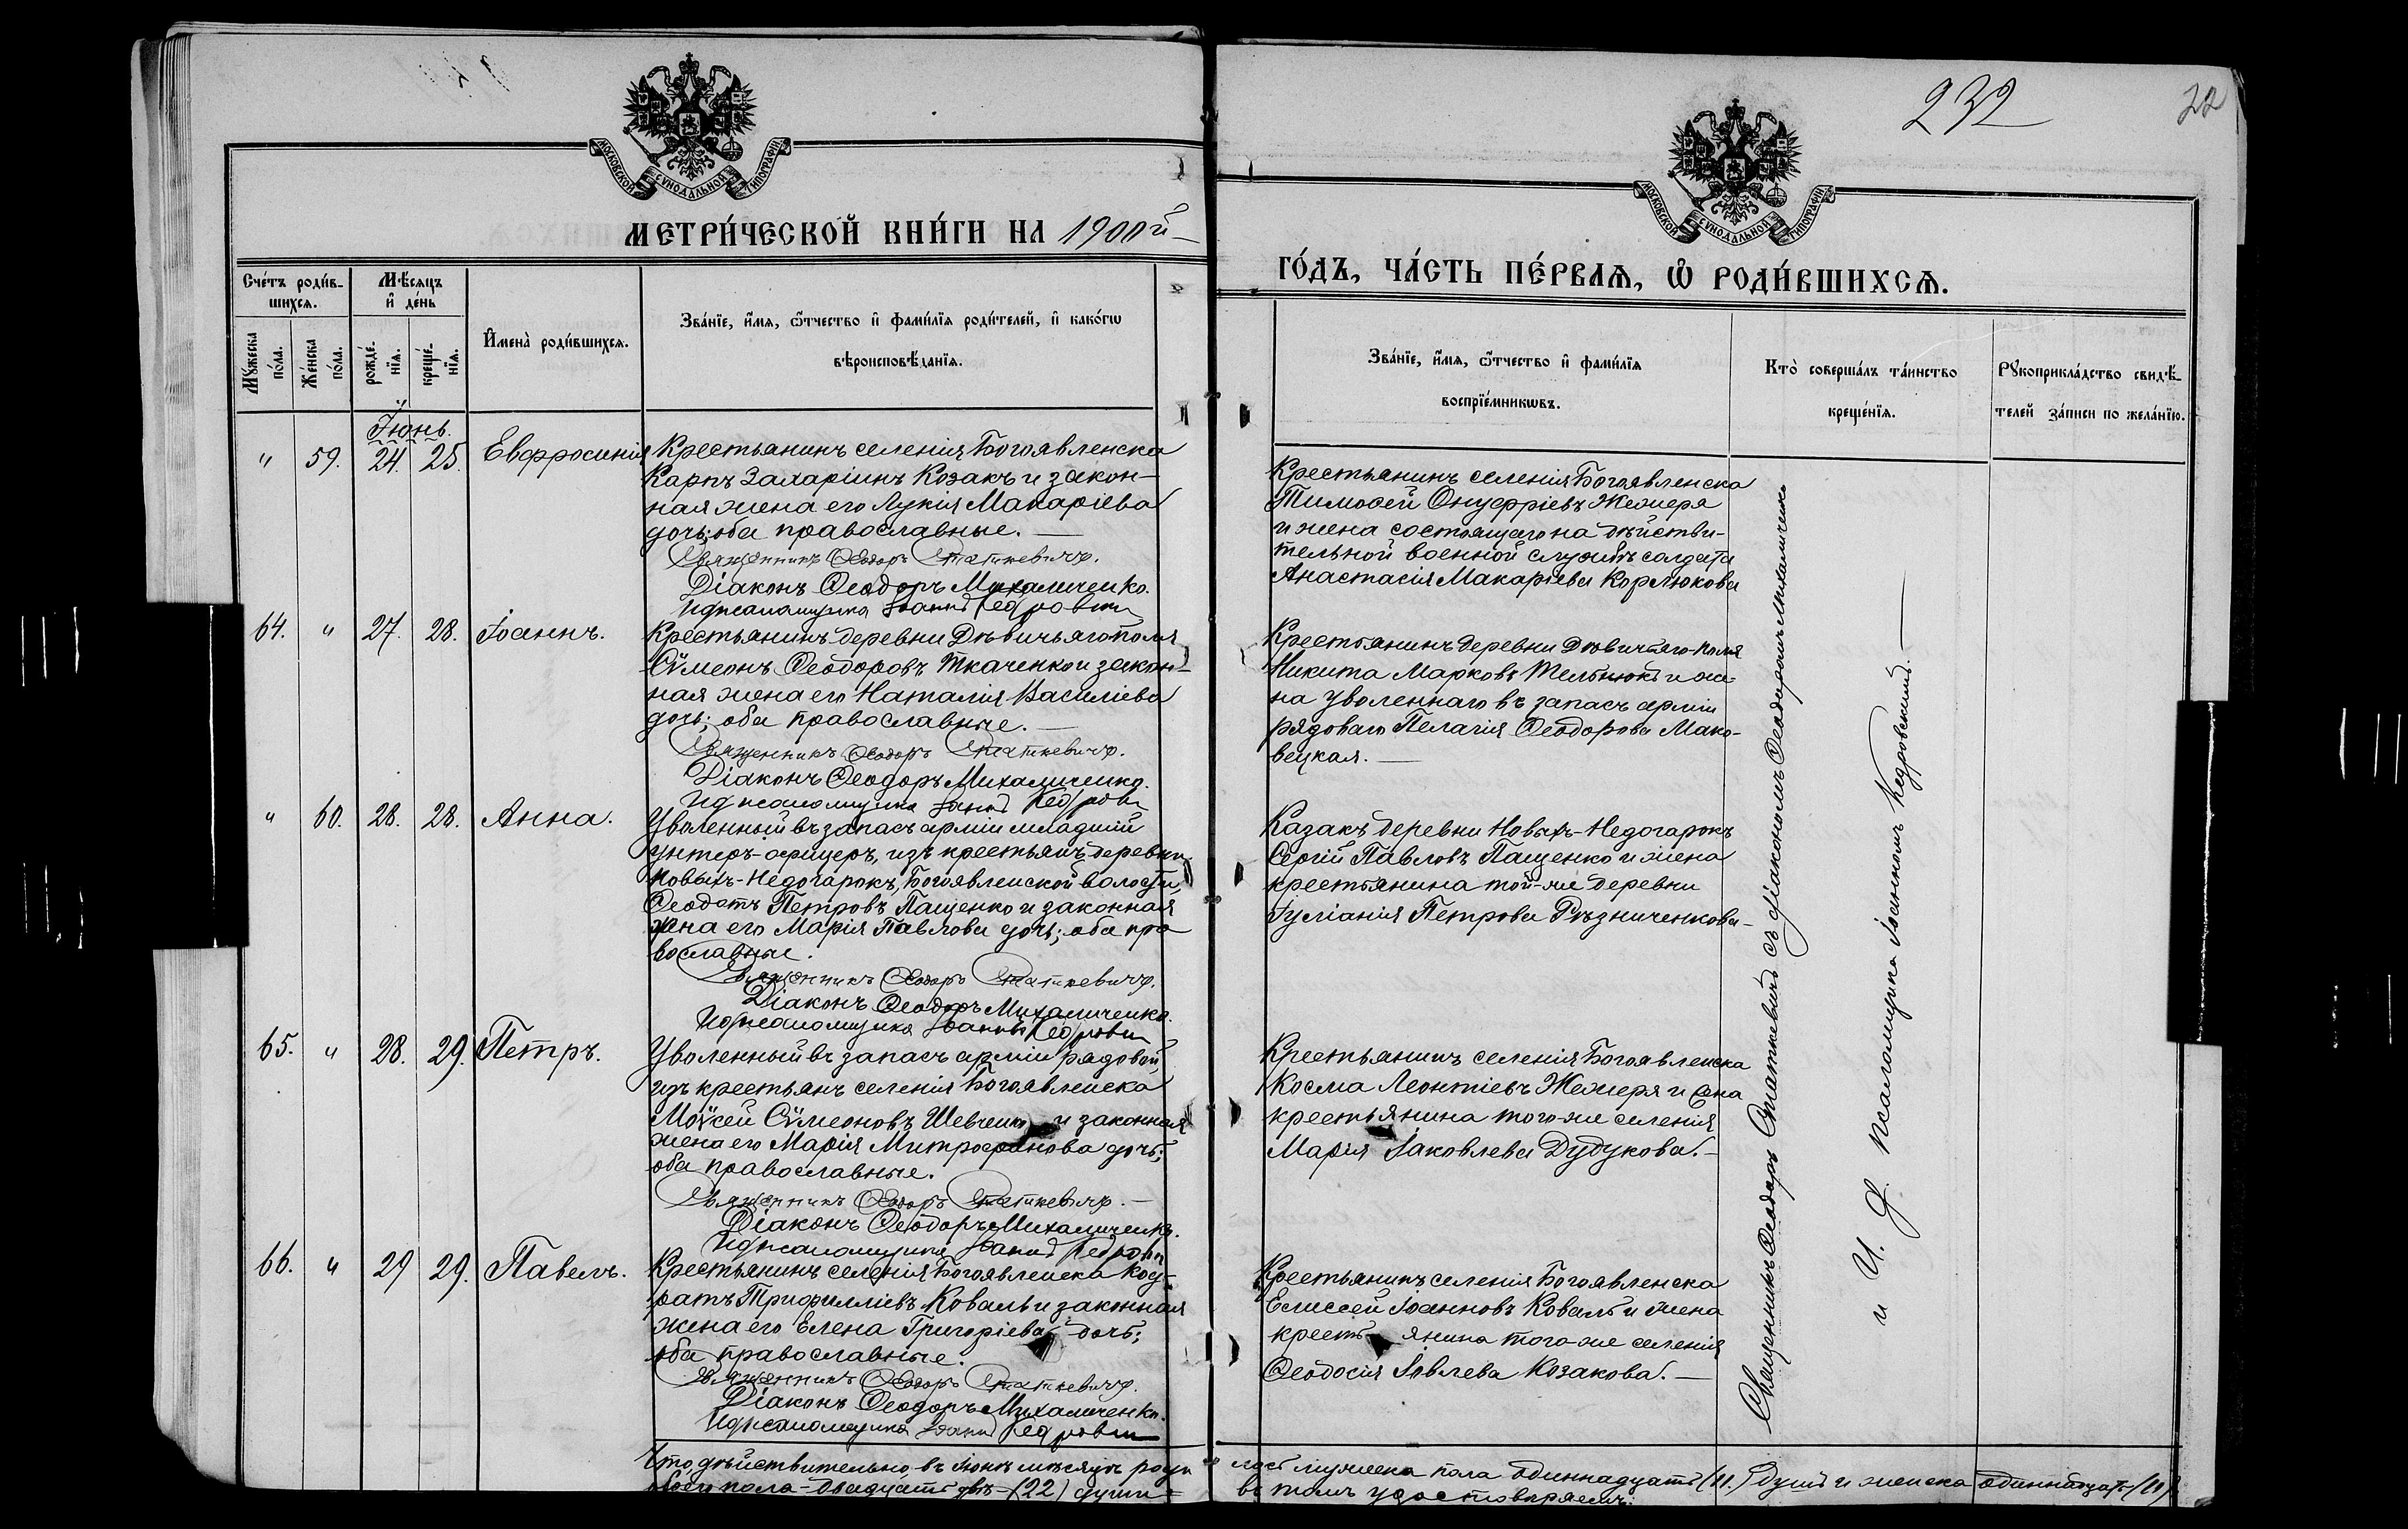 232
22
МОСКОВСКОЙ СѴНОДАЛЬНОЙ ТИПОГРАФІИ
МОСКОВСКОЙ СѴНОДАЛЬНОЙ ТИПОГРАФІИ
МЕТРИ́ЧЕСКОЙ КНИ́ГИ НА 1900й
ГО́ДЪ, ЧА́СТЬ ПЕ́РВАѦ, Ѡ҆ РОДИ́ВШИХСѦ.
Сче́тъ роди́в-
шихсѧ.
Мꙋ́жеска по́ла.
Же́нска по́ла.
Мѣ́сѧцъ
и҆ де́нь
рожде́-
нїѧ.
креще́-
нїѧ.
И҆мена̀ роди́вшихсѧ.
Зва́нїе, и҆́мѧ, ѻ҆́тчество и҆ фами́лїѧ роди́телей, и҆ како́гѡ
вѣроисповѣ́данїѧ.
Зва́нїе, и҆́мѧ, ѻ҆́тчество и҆ фами́лїѧ
воспрїе́мникѡвъ.
Кто̀ соверша́лъ та́инство
креще́нїѧ.
Рꙋкоприкла́дство свидѣ́-
телей за́писи по жела́нїю.
Іюнь.
" 59. 24. 25. Евфросинія
Крестьянинъ селенія Богоявленска
Карпъ Захаріинъ Козакъ и закон-
ная жена его Лукія Макаріева
дочь; оба православные. —
Священникъ Ѳеодоръ Статкевичъ.
Діаконъ Ѳеодоръ Михаличенко.
И д псаломщика Іоаннъ Кедровскій
Крестьянинъ селенія Богоявленска
Тимоѳей Онуфріевъ Жежеря
и жена состоящаго на дѣйстви-
тельной военной службѣ солдата
Анастасія Макаріева Корлюкова
64. " 27. 28. Іоаннъ.
Крестьянинъ деревни Дѣвичьяго поля
Сѵмеонъ Ѳеодоровъ Ткаченко и закон-
ная жена его Наталія Василіева
дочь; оба православные. —
Священникъ Ѳеодоръ Статкевичъ.
Діаконъ Ѳеодоръ Михаличенко.
И д псаломщика Іоаннъ Кедровскій
Крестьянинъ деревни Дѣвичьяго-поля
Никита Марковъ Мельнюкъ и же-
на уволеннаго въ запасъ арміи
рядоваго Пелагія Ѳеодорова Мако-
вецкая. —
" 60. 28. 28. Анна.
Уволенный въ запасъ арміи младшій
унтеръ-офицеръ, изъ крестьянъ деревни
Новыхъ-Недогарокъ, Богоявленской волости,
Ѳеодотъ Петровъ Пащенко и законная
жена его Марія Павлова дочь; оба пра-
вославные.
Священникъ Ѳеодоръ Статкевичъ.
Діаконъ Ѳеодоръ Михаличенко.
И д псаломщика Іоаннъ Кедровскій
Казакъ деревни Новыхъ-Недогарокъ
Сергій Павловъ Пащенко и жена
крестьянина той-же деревни
Іуліанія Петрова Рѣзниченкова —
65. " 28. 29. Петръ.
Уволенный въ запасъ арміи рядовой,
изъ крестьянъ селенія Богоявленска
Моѵсей Сѵмеоновъ Шевченко и законная
жена его Марія Митрофанова дочь;
оба православные.
Священникъ Ѳеодоръ Статкевичъ. —
Діаконъ Ѳеодоръ Михаличенко.
И д псаломщика Іоаннъ Кедровскій
Крестьянинъ селенія Богоявленска
Косма Леонтіевъ Жежеря и жена
крестьянина того-же селенія
Марія Іаковлева Дудукова. —
66. " 29 29. Павелъ.
Крестьянинъ селенія Богоявленска Код-
ратъ Трифилліевъ Коваль и законная
жена его Елена Григоріева дочь;
оба православные.
Священникъ Ѳеодоръ Статкевичъ.
Діаконъ Ѳеодоръ Михаличенко.
И д псаломщика Іоаннъ Кедровскій
Крестьянинъ селенія Богоявленска
Елиссей Іоанновъ Коваль и жена
крестьянина того-же селенія
Ѳеодосія Іовлева Козакова. —
Священникъ Ѳеодоръ Статкевичъ съ діакономъ Ѳеодоромъ Михаличенко
и И. д. псаломщика Іоанномъ Кедровскимъ. —
Что дѣйствительно въ Іюнѣ мѣсяцѣ роди лось мужеска пола одиннадцать (11.) душъ и женска одиннадцать (11)
обоего пола — двадцать двѣ — (22) души — въ томъ удостовѣряемъ: